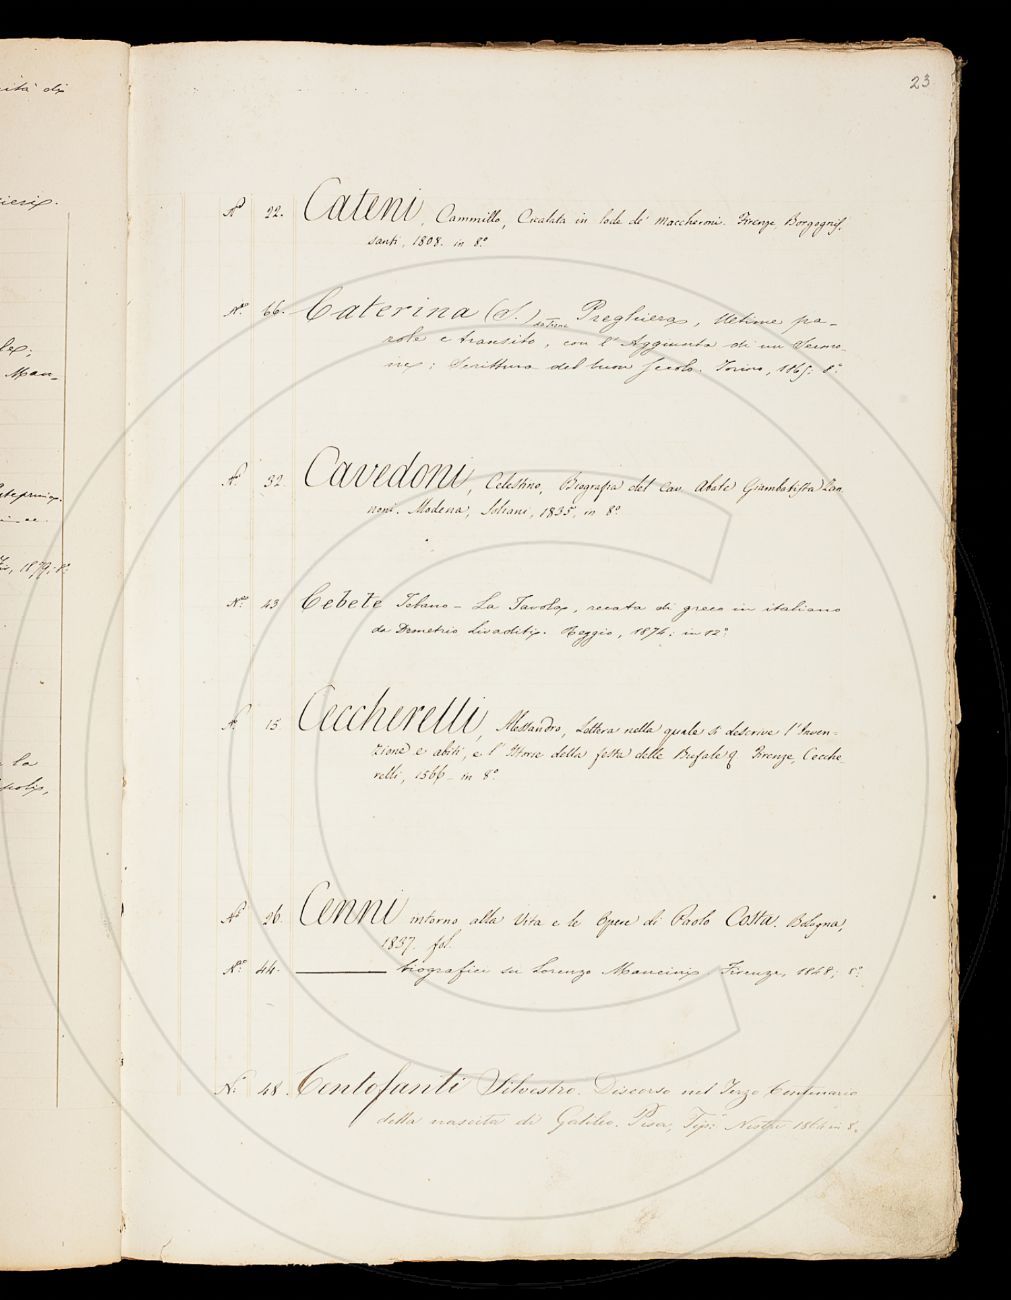 23
ità di
N.º 22. Cateni, Cammillo, Cicalata in lode de' Maccheroni. Firenze, Borgognis-
santi, 1808. in 8.º
N.º 66. Caterina (S.) da Siena Preghiera, Ultime pa-
role e transito, con l'Aggiunta di un Sermo-
ne; Scrittura del buon secolo. Torino, 1865; 8.º
N.º 32. Cavedoni, Celestino, Biografia del Cav. Abate Giambatista Zan
noni. Modena, Soliani, 1835, in 8.º
N.º 43 Cebete Tebano – La Tavola, recata di greco in italiano
da Demetrio Livaditi. Reggio, 1874; in 12º.
N.º 15. Ceccherelli, Alessandro, Lettera nella quale si descrive l'Inven-
zione e abiti, e l'Storie della festa delle Bufale &. Firenze, Cecche-
relli, 1566 – in 8.º
N.º 26. Cenni intorno alla Vita e le Opere di Paolo Costa. Bologna,
1837. fol.
N.º 44. ——— biografici su Lorenzo Mancini. Firenze, 1848; 8.º
N. 48. Centofanti Silvestro. Discorso nel Terzo Centenario
della nascita di Galileo. Pisa, Tip. Nistri 1864 in 8.
la